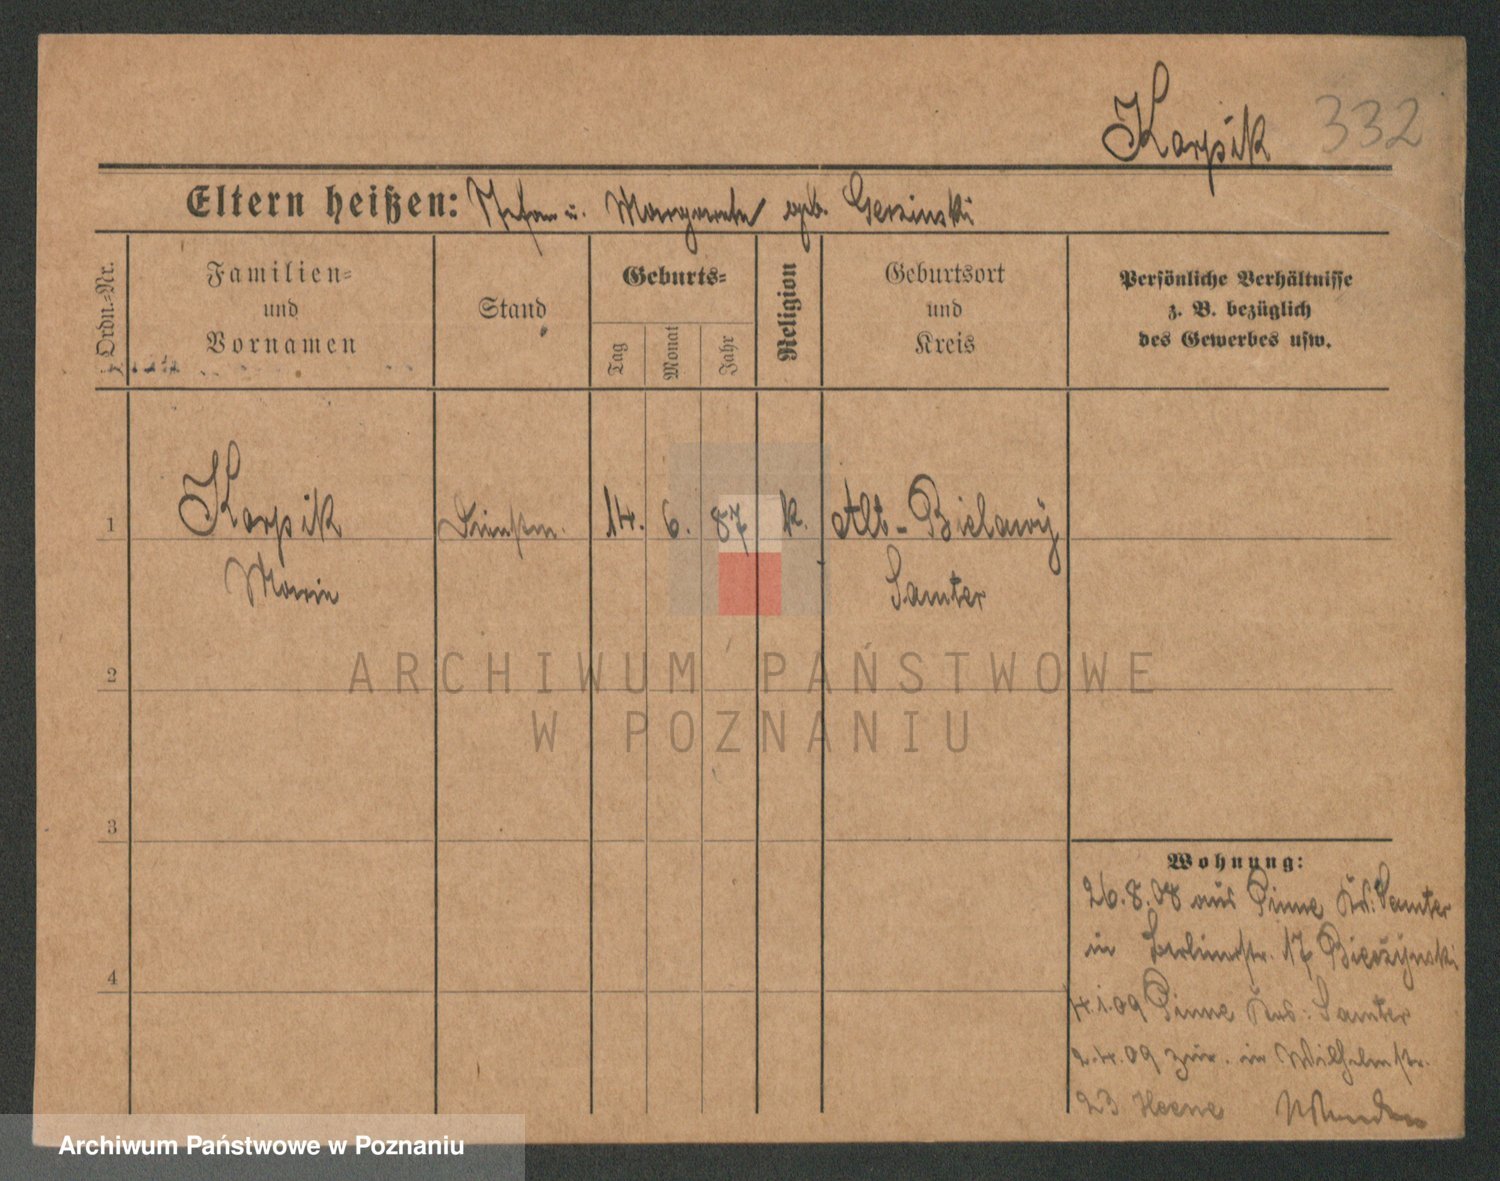 Karpik 332
Eltern heißen: Stefan u. Margarete geb. Gerzinski
Ordn.=Nr.
Familien=
und
Vornamen
Stand
Geburts=
Tag
Monat
Jahr
Religion
Geburtsort
und
Kreis
Persönliche Verhältnisse
z. B. bezüglich
des Gewerbes usw.
1 Karpik 14. 6. 87 k. Alt-Bielawy
Marie Samter
2
3
4
Wohnung:
26.8.08 aus Pinne Krs: Samter
in Berlinerstr. 17 Bieczynski
4.1.09 Pinne Krs: Samter
2.4.09 zur. in Wilhelmstr.
23
ARCHIWUM PAŃSTWOWE
W POZNANIU
Archiwum Państwowe w Poznaniu